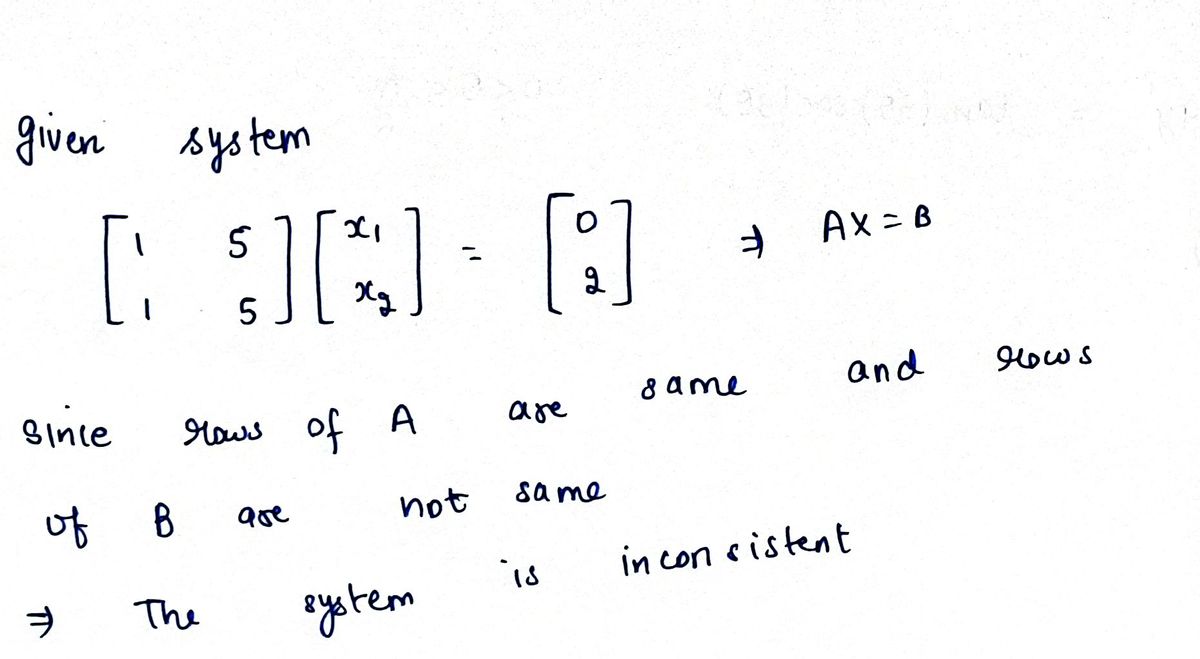 given system
[1 5
1 5] [x₁
x₂] = [0
2] ⇒ AX = B
Since rows of A are same and rows
of B are not same
⇒ The system is inconsistent